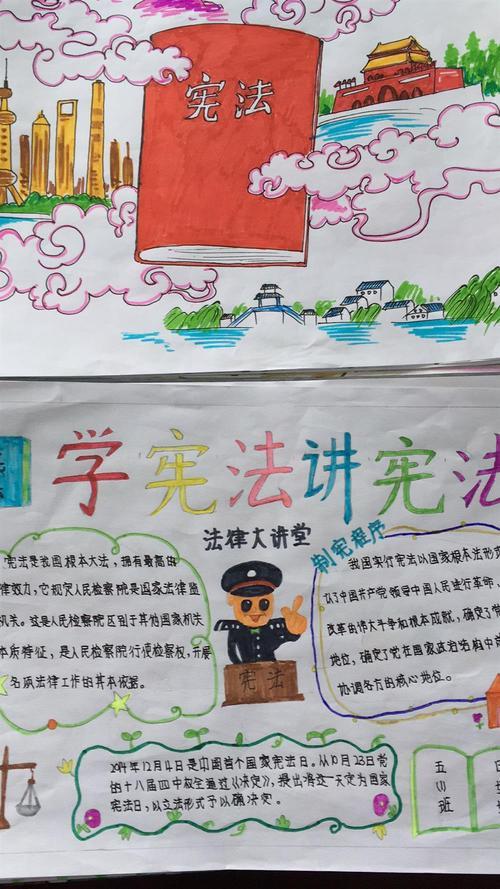 宪法
学宪法讲宪法
法律大讲堂
制宪程序
宪法是我国根本大法，拥有最高的
律效力，它规定人民检察院是国家法律监
机关。这是人民检察院区别于其他国家机关
本质特征，是人民检察院行使检察权，开展
各项法律工作的基本依据。
我国实行宪法以国家根本法形式
了中国共产党领导中国人民进行革命、
改革的伟大斗争和根本成就，确立了
地位，确定了党在国家政治结构中
协调各方的核心地位。
宪法
2014年12月4日是中国首个国家宪法日。从10月23日党
的十八届四中权全通过《决定》，提出将这一天定为国家
宪法日，以立法形式予以确决定。
五
(1)
班